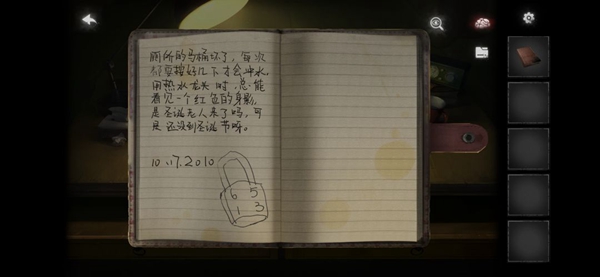 厕所的马桶坏了，每次
都要按好几下才会冲水，
用热水龙头时，总能
看见一个红色的身影，
是圣诞老人来了吗，可
是还没到圣诞节呀。
10.17.2010
6 5
1 3